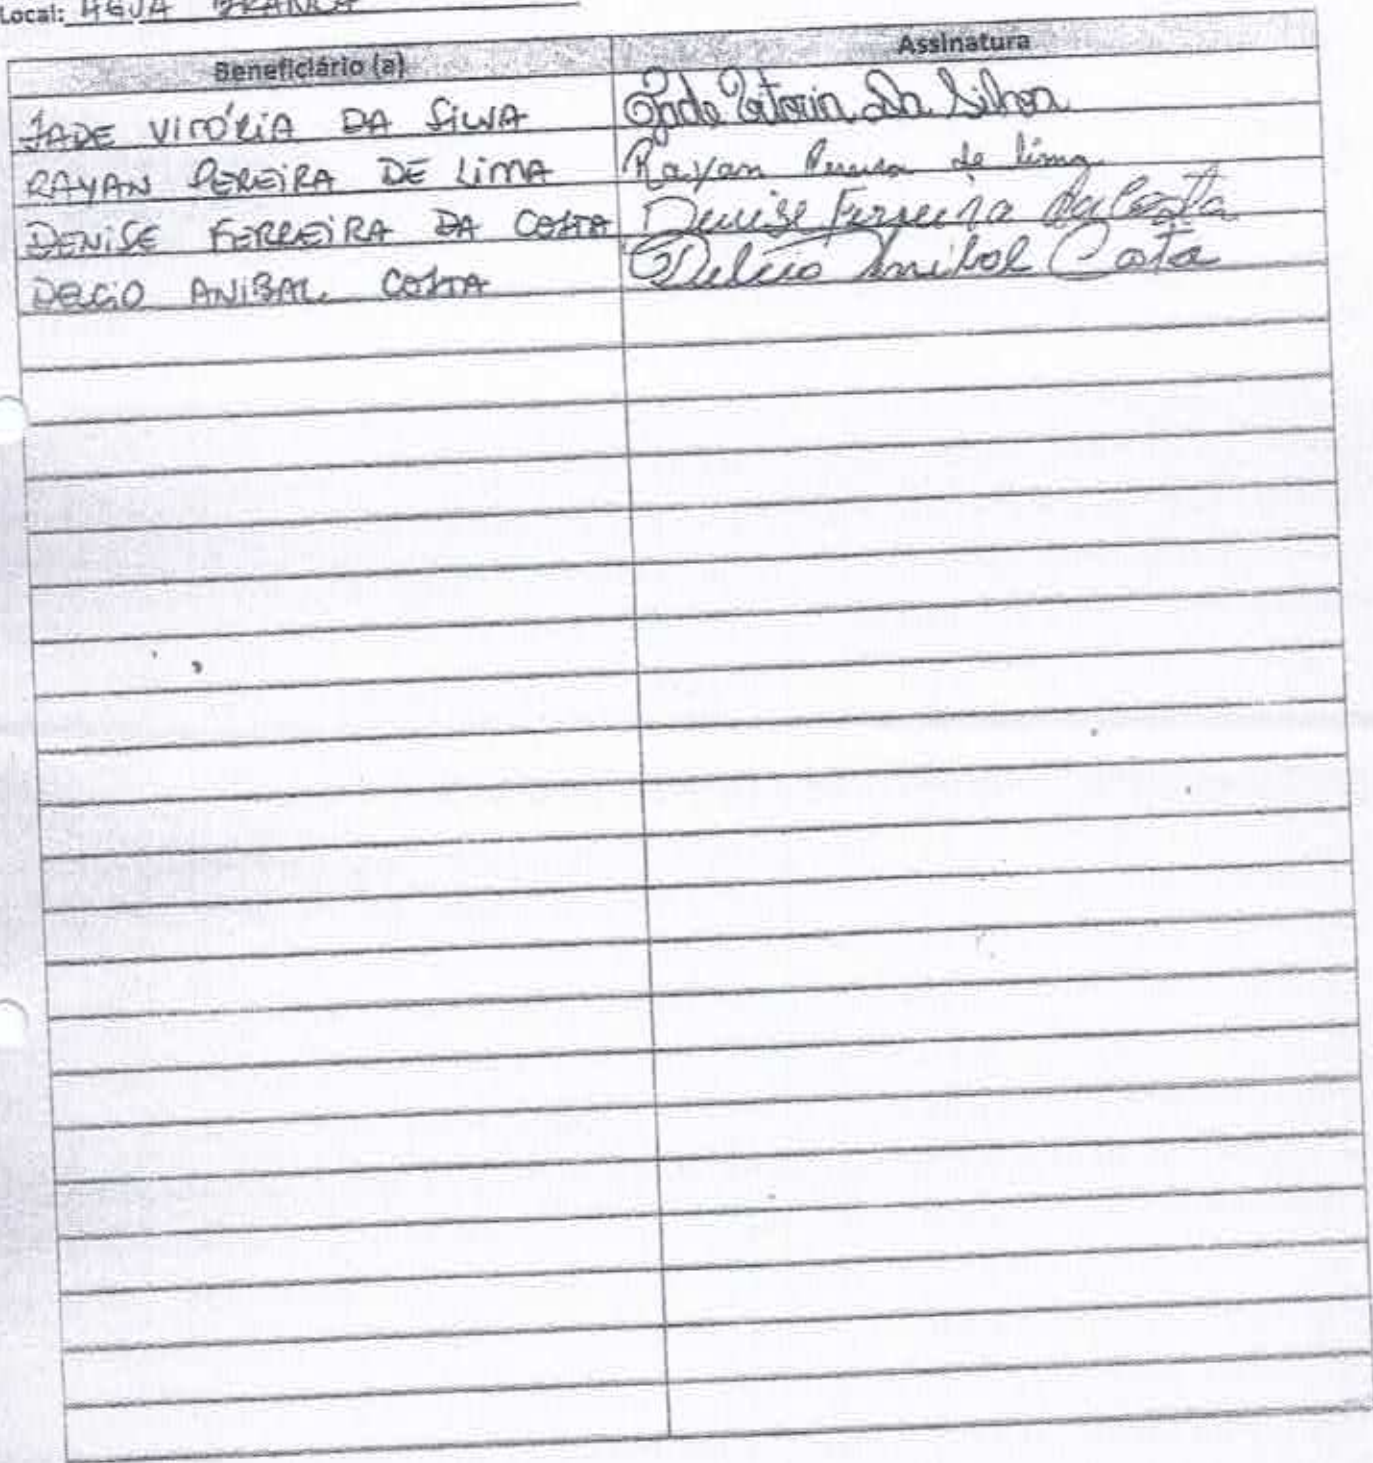 Local: AGUA BRANCA
Beneficiário (a) Assinatura
JADE VITÓRIA DA SILVA Jade Vitoria Da Silva
RAYAN PEREIRA DE LIMA Rayan Pereira de lima
DENISE FERREIRA DA COSTA Denise Ferreira da Costa
DELCIO ANIBAL COSTA Delcio Anibal Costa